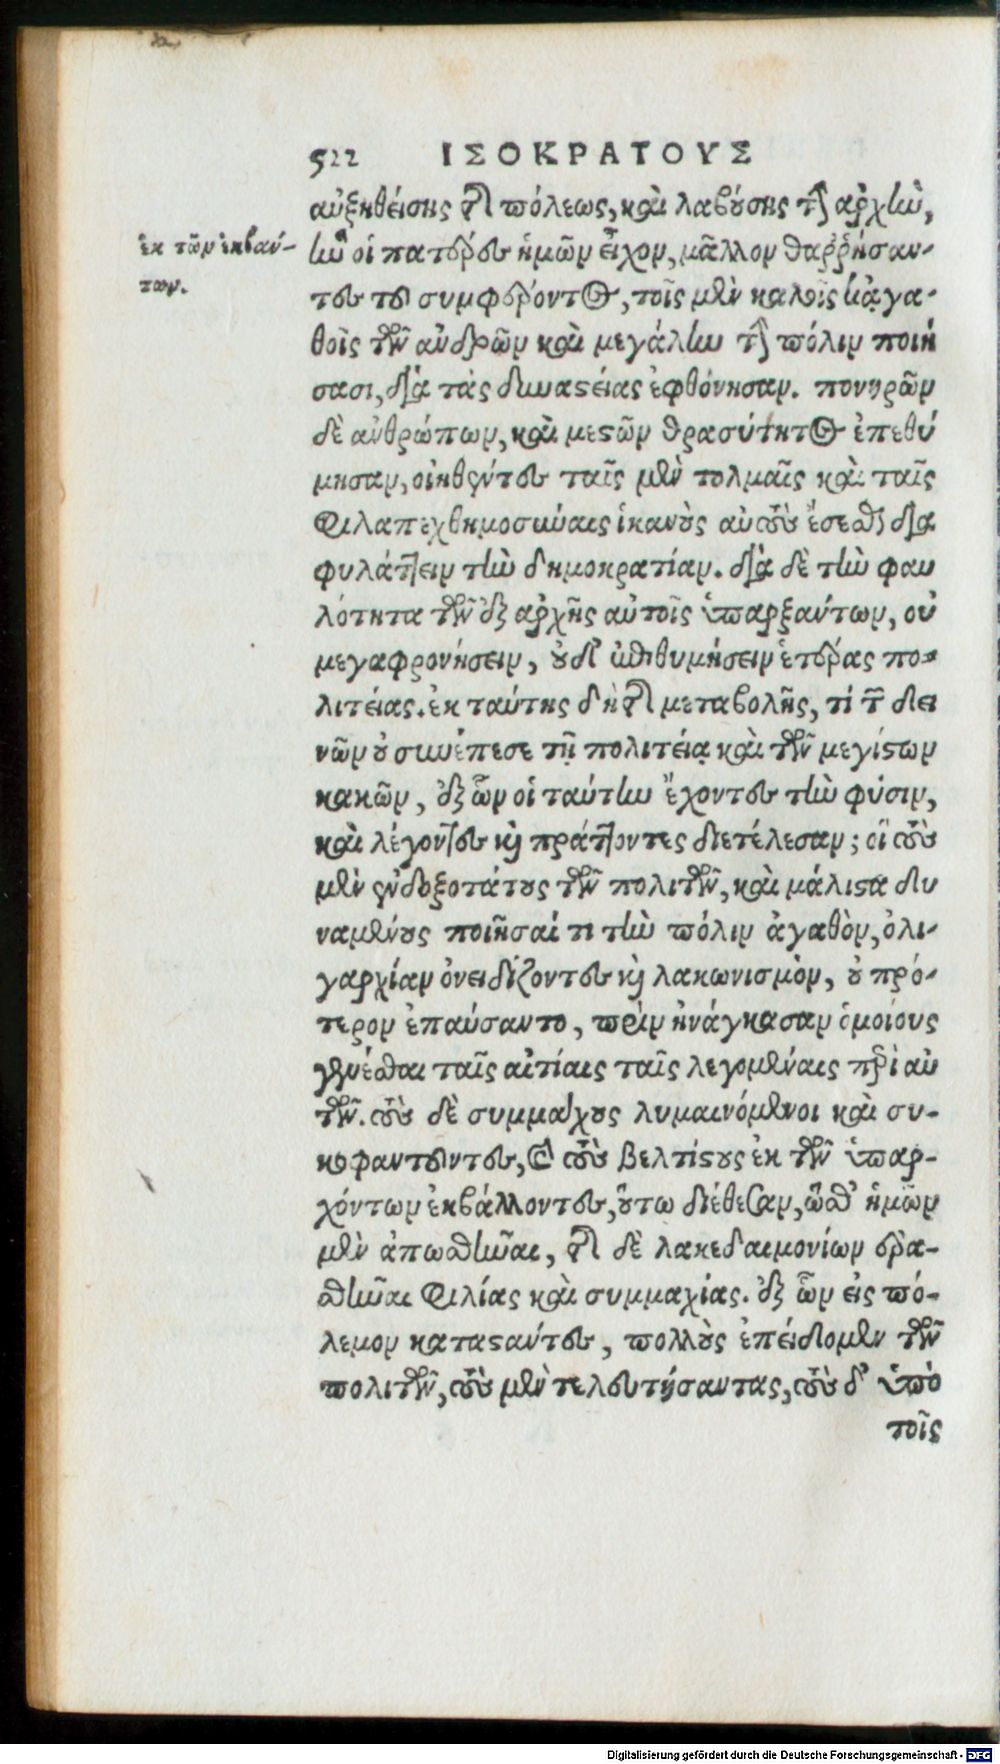 522 ΙΣΟΚΡΑΤΟΥΣ
αὐξηθείσης τῆς πόλεως, καὶ λαβούσης τὴν ἀρχὴν,
ἐκ τῶν ἐκβάν-
των.
ἣν οἱ πατέρες ἡμῶν εἶχον, μᾶλλον θαῤῥήσαν-
τες τοῦ συμφέροντος, τοῖς μὲν καλοῖς κἀγα-
θοῖς τῶν ἀνδρῶν καὶ μεγάλην τὴν πόλιν ποιή
σασι, διὰ τὰς δυναστείας ἐφθόνησαν. πονηρῶν
δὲ ἀνθρώπων, καὶ μεστῶν θρασύτητος ἐπεθύ
μησαν, οἰηθέντες ταῖς μὲν τολμαῖς καὶ ταῖς
φιλαπεχθημοσύναις ἱκανοὺς αὐτοὺς ἔσεσθαι δια
φυλάττειν τὴν δημοκρατίαν. διὰ δὲ τὴν φαυ
λότητα τῶν ἐξ ἀρχῆς αὐτοῖς ὑπαρξάντων, οὐ
μεγαφρονήσειν, οὐδ' ἐπιθυμήσειν ἑτέρας πο-
λιτείας. ἐκ ταύτης δὴ τῆς μεταβολῆς, τί τῶν δει
νῶν οὐ συνέπεσε τῇ πολιτείᾳ καὶ τῶν μεγίστων
κακῶν, ἐξ ὧν οἱ ταύτην ἔχοντες τὴν φύσιν,
καὶ λέγοντες καὶ πράττοντες διετέλεσαν; οἳ τοὺς
μὲν ἐνδοξοτάτους τῶν πολιτῶν, καὶ μάλιστα δυ
ναμένους ποιῆσαί τι τὴν πόλιν ἀγαθὸν, ὀλι-
γαρχίαν ὀνειδίζοντες καὶ λακωνισμὸν, οὐ πρό-
τερον ἐπαύσαντο, πρὶν ἠνάγκασαν ὁμοίους
γενέσθαι ταῖς αἰτίαις ταῖς λεγομέναις περὶ αὐ
τῶν. τοὺς δὲ συμμάχους λυμαινόμενοι καὶ συ-
κοφαντοῦντες, καὶ τοὺς βελτίστους ἐκ τῶν ὑπαρ-
χόντων ἐκβάλλοντες, οὕτω διέθεσαν, ὥσθ' ἡμῶν
μὲν ἀποστῆναι, τῆς δὲ λακεδαιμονίων ἐρα-
σθῆναι φιλίας καὶ συμμαχίας. ἐξ ὧν εἰς πό-
λεμον καταστάντες, πολλοὺς ἐπείδομεν τῶν
πολιτῶν, τοὺς μὲν τελευτήσαντας, τοὺς δ' ὑπὸ
τοῖς
Digitalisierung gefördert durch die Deutsche Forschungsgemeinschaft - DFG